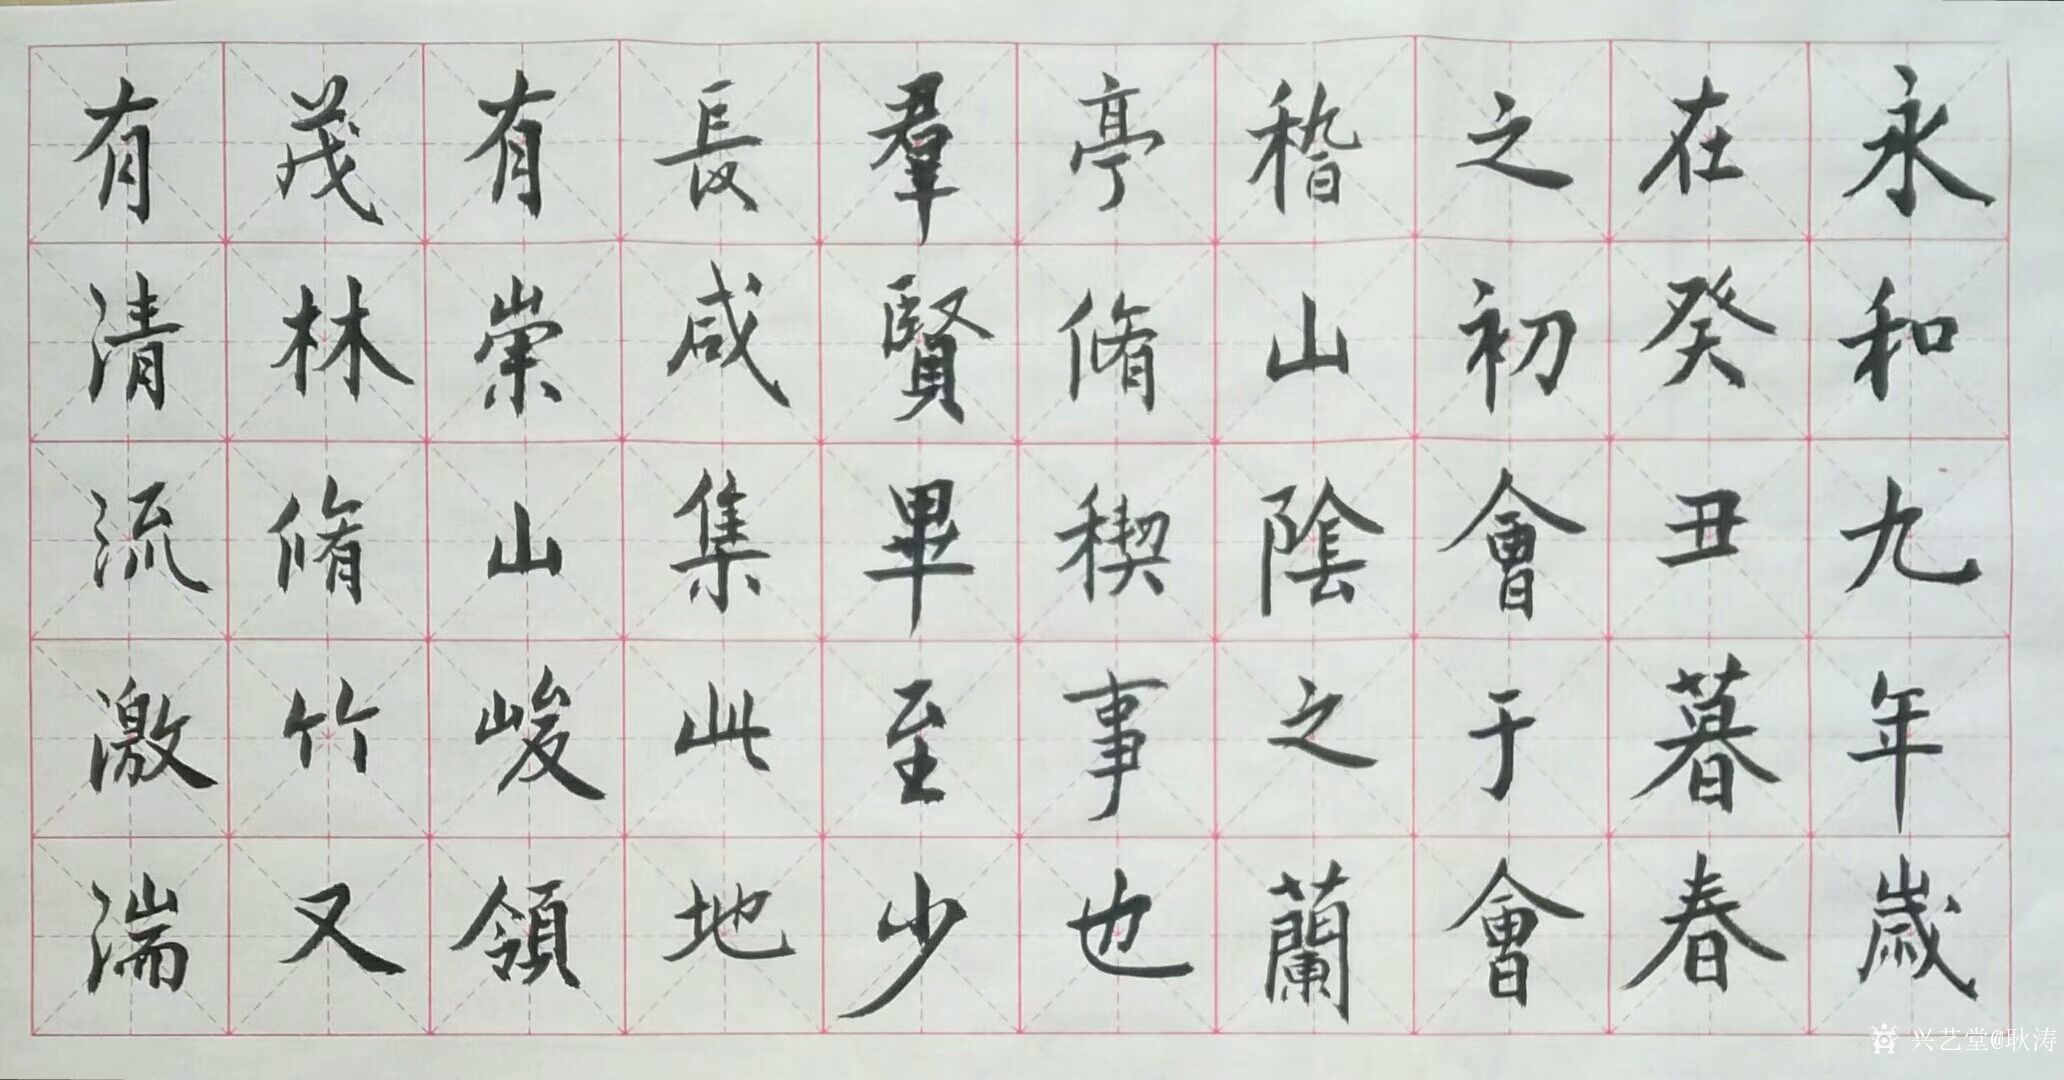 永和九年歲
在癸丑暮春
之初會于會
稽山陰之蘭
亭脩稧事也
羣賢畢至少
長咸集此地
有崇山峻領
茂林脩竹又
有清流激湍
兴艺堂@耿涛